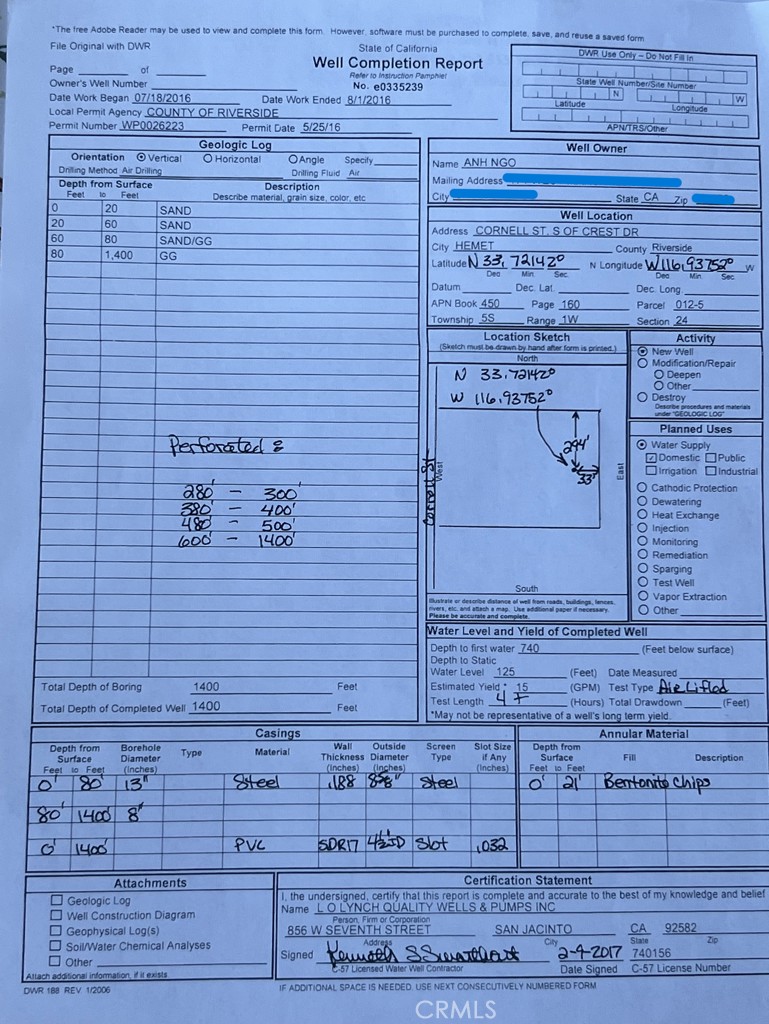 *The free Adobe Reader may be used to view and complete this form. However, software must be purchased to complete, save, and reuse a saved form.
File Original with DWR
State of California
Well Completion Report
Refer to Instruction Pamphlet
No. e0335239
Page of
Owner's Well Number
Date Work Began 07/18/2016 Date Work Ended 8/1/2016
Local Permit Agency COUNTY OF RIVERSIDE
Permit Number WP0026223 Permit Date 5/25/16
DWR Use Only – Do Not Fill In
State Well Number/Site Number
N W
Latitude Longitude
APN/TRS/Other
Geologic Log
Orientation Vertical Horizontal Angle Specify
Drilling Method Air Drilling Drilling Fluid Air
Depth from Surface Description
Feet to Feet Describe material, grain size, color, etc
0 20 SAND
20 60 SAND
60 80 SAND/GG
80 1,400 GG
Perforated :
280' – 300'
380' – 400'
480' – 500'
600' – 1400'
Total Depth of Boring 1400 Feet
Total Depth of Completed Well 1400 Feet
Well Owner
Name ANH NGO
Mailing Address
City State CA Zip
Well Location
Address CORNELL ST. S OF CREST DR
City HEMET County Riverside
Latitude N 33.72142° N Longitude W116.93752° W
Deg. Min. Sec. Deg. Min. Sec.
Datum Dec. Lat. Dec. Long.
APN Book 450 Page 160 Parcel 012-5
Township 5S Range 1W Section 24
Location Sketch
(Sketch must be drawn by hand after form is printed.)
North
N 33.72142°
W 116.93752°
294'
33'
Cornell St.
West
East
South
Illustrate or describe distance of well from roads, buildings, fences, rivers, etc. and attach a map. Use additional paper if necessary.
Please be accurate and complete.
Activity
New Well
Modification/Repair
Deepen
Other
Destroy
Describe procedures and materials under "GEOLOGIC LOG"
Planned Uses
Water Supply
Domestic Public
Irrigation Industrial
Cathodic Protection
Dewatering
Heat Exchange
Injection
Monitoring
Remediation
Sparging
Test Well
Vapor Extraction
Other
Water Level and Yield of Completed Well
Depth to first water 740 (Feet below surface)
Depth to Static
Water Level 125 (Feet) Date Measured
Estimated Yield * 15 (GPM) Test Type Air Lifted
Test Length 4 + (Hours) Total Drawdown (Feet)
*May not be representative of a well's long term yield.
Casings
Depth from Surface Borehole Diameter Type Material Wall Thickness Outside Diameter Screen Type Slot Size if Any
Feet to Feet (Inches) (Inches) (Inches) (Inches)
0' 80' 13" Steel .188 Steel
80' 1400' 8"
0' 1400' PVC SDR17 Slot .032
Annular Material
Depth from Surface Fill Description
Feet to Feet
0' 21' Bentonite Chips
Attachments
Geologic Log
Well Construction Diagram
Geophysical Log(s)
Soil/Water Chemical Analyses
Other
Attach additional information, if it exists.
Certification Statement
I, the undersigned, certify that this report is complete and accurate to the best of my knowledge and belief
Name L O LYNCH QUALITY WELLS & PUMPS INC
Person, Firm or Corporation
856 W SEVENTH STREET SAN JACINTO CA 92582
Address City State Zip
Signed 2-4-2017 740156
C-57 Licensed Water Well Contractor Date Signed C-57 License Number
DWR 188 REV. 1/2006 IF ADDITIONAL SPACE IS NEEDED, USE NEXT CONSECUTIVELY NUMBERED FORM
CRMLS